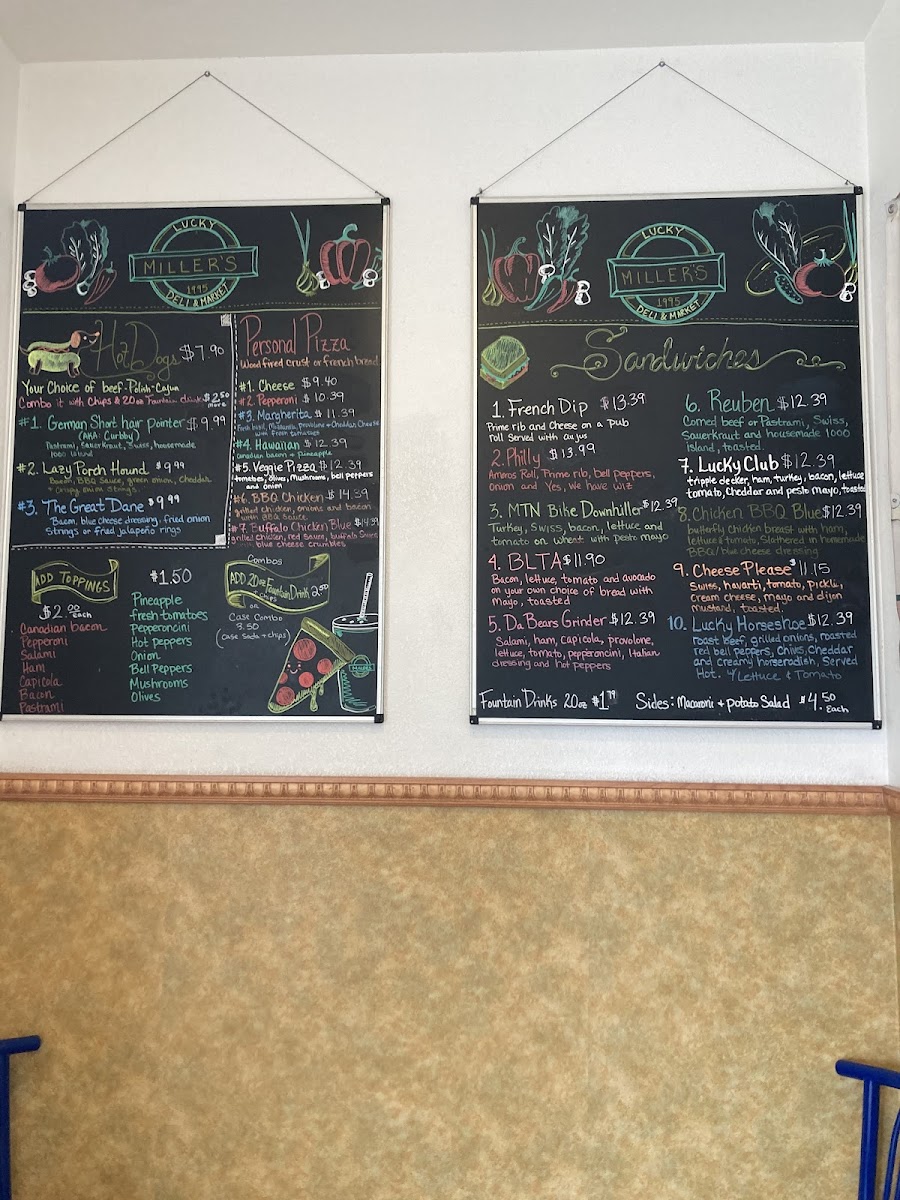 LUCKY
MILLER'S
1995
DELI & MARKET
Hot Dogs $7.90
Your Choice of beef-Polish-Cajun
Combo it with Chips & 20oz Fountain drink $2.50 more
#1. German Short hair pointer $9.99
(AKA: Curbby)
Pastrami, Sauerkraut, Swiss, housemade
1000 island
#2. Lazy Porch Hound $9.99
Bacon, BBQ Sauce, green onion, Cheddar
+ Crispy onion strings.
#3. The Great Dane $9.99
Bacon, blue cheese dressing, fried onion
Strings or fried jalapeño rings
Personal Pizza
Wood fired crust or french bread
#1. Cheese $9.40
#2. Pepperoni $10.39
#3. Margherita $11.39
Fresh basil, Mozzarella, provolone + Cheddar Cheese
with Fresh tomatoes
#4. Hawaiian $12.39
Canadian bacon + Pineapple
#5. Veggie Pizza $12.39
tomatoes, olives, Mushrooms, bell peppers
and onion
#6. BBQ Chicken $14.39
grilled chicken, onions and bacon
with BBQ Sauce
#7. Buffalo Chicken Blue $14.39
grilled chicken, red sauce, buffalo Sauce
blue cheese crumbles
ADD TOPPINGS
$2.00 each
Canadian bacon
Pepperoni
Salami
Ham
Capicola
Bacon
Pastrami
$1.50
Pineapple
fresh tomatoes
Pepperoncini
Hot peppers
Onion
Bell Peppers
Mushrooms
Olives
Combos
ADD 20oz Fountain Drink 2.50
+ chips
OR
Case Combo
3.50
(case Soda + chips)
MILLER'S
LUCKY
MILLER'S
1995
DELI & MARKET
Sandwiches
1. French Dip $13.39
Prime rib and Cheese on a Pub
roll Served with aujus
2. Philly $13.99
Amoros Roll, Prime rib, bell peppers,
Onion and Yes, We have Wiz
3. MTN Bike Downhiller $12.39
Turkey, Swiss, bacon, lettuce and
tomato on wheat with pesto mayo
4. BLTA $11.90
Bacon, lettuce, tomato and avocado
on your own choice of bread with
Mayo, toasted
5. Da Bears Grinder $12.39
Salami, ham, capicola, provolone,
lettuce, tomato, pepperoncini, Italian
dressing and hot peppers
6. Reuben $12.39
Corned beef or Pastrami, Swiss,
Sauerkraut and housemade 1000
island, toasted.
7. Lucky Club $12.39
tripple decker, ham, turkey, bacon, lettuce
tomato, Cheddar and pesto mayo, toasted
8. Chicken BBQ Blue $12.39
butterfly chicken breast with ham,
lettuce & tomato, Slathered in homemade
BBQ/blue cheese dressing
9. Cheese Please $11.15
Swiss, havarti, tomato, pickle,
cream cheese, mayo and dijon
mustard, toasted.
10. Lucky Horseshoe $12.39
roast beef, grilled onions, roasted
red bell peppers, Chives, Cheddar
and creamy horseradish, Served
Hot. w/ Lettuce & Tomato
Fountain Drinks 20oz $1.79
Sides: Macaroni + potato Salad $4.50 Each